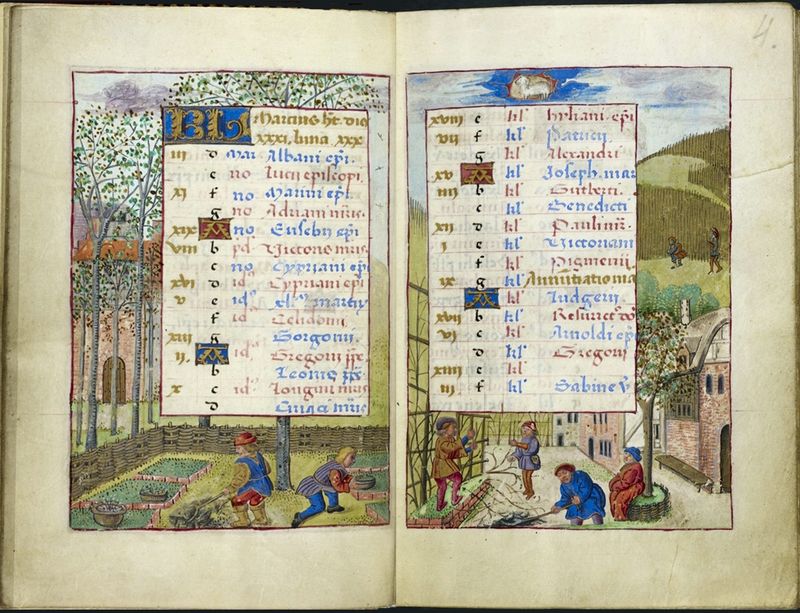 KL Martius ht. dies
XXXI. luna XXX
iii d Mar Albani epi.
e no Lucii episcopi
xi f no Marini epi.
g no Adriani mris.
xix A no Eusebii epi
viii b pd Victoris mris
c no Cypriani epi
xvi d id Cypriani epi
v e id xl. martir
f id Celidonii.
xiii g id Gorgonii.
ii. A id Gregorii ppe.
b id Leonis ppe.
x c id Longini mris
d Ciriaci mris
xviii e kl epi
vii f kl Patricii
g kl Alexandri
xv A kl Joseph. mar
iiii b kl Gutberti.
c kl Benedicti
xii d kl Paulini.
i e kl Victoriani
f kl Pigmenii
ix g kl Annuntiatio ma
A kl Ludgerii.
xvii b kl Resurectio
vi c kl Arnoldi epi
d kl Gregorii
xiiii e kl
iii f kl Sabine v
4.